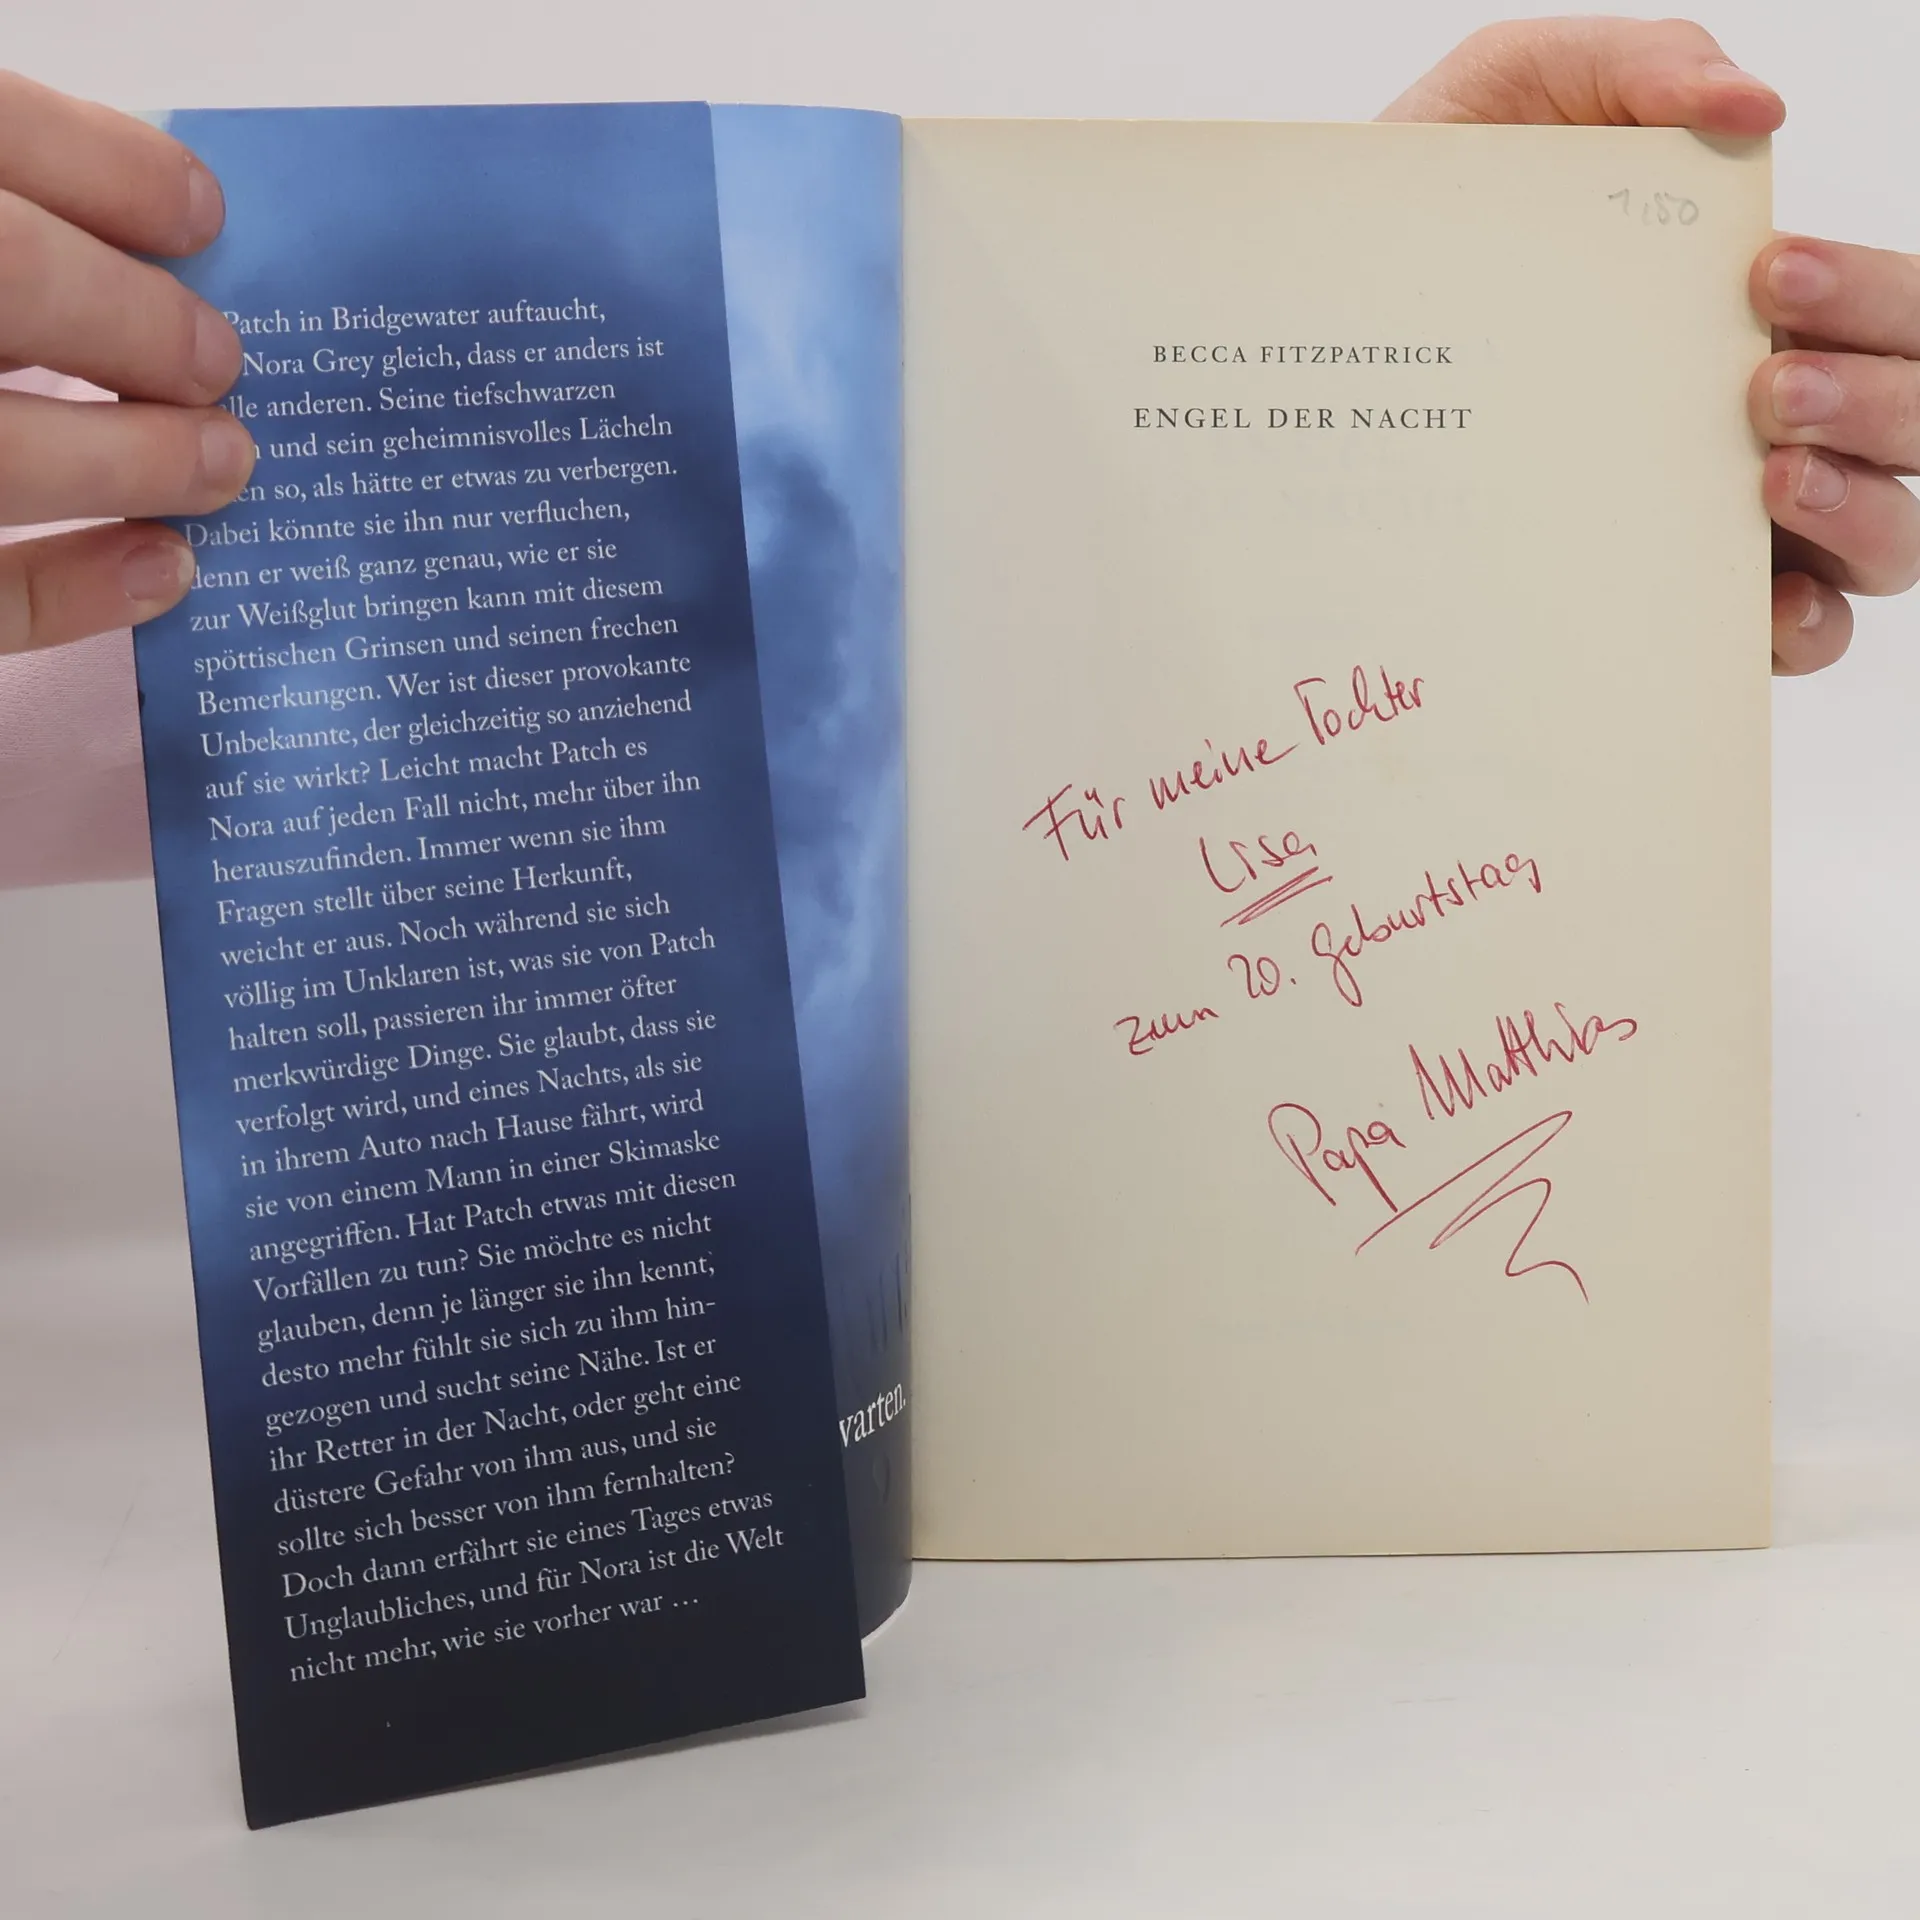 Patch in Bridgewater auftaucht,
Nora Grey gleich, dass er anders ist
alle anderen. Seine tiefschwarzen
und sein geheimnisvolles Lächeln
so, als hätte er etwas zu verbergen.
Dabei könnte sie ihn nur verfluchen,
denn er weiß ganz genau, wie er sie
zur Weißglut bringen kann mit diesem
spöttischen Grinsen und seinen frechen
Bemerkungen. Wer ist dieser provokante
Unbekannte, der gleichzeitig so anziehend
auf sie wirkt? Leicht macht Patch es
Nora auf jeden Fall nicht, mehr über ihn
herauszufinden. Immer wenn sie ihm
Fragen stellt über seine Herkunft,
weicht er aus. Noch während sie sich
völlig im Unklaren ist, was sie von Patch
halten soll, passieren ihr immer öfter
merkwürdige Dinge. Sie glaubt, dass sie
verfolgt wird, und eines Nachts, als sie
in ihrem Auto nach Hause fährt, wird
sie von einem Mann in einer Skimaske
angegriffen. Hat Patch etwas mit diesen
Vorfällen zu tun? Sie möchte es nicht
glauben, denn je länger sie ihn kennt,
desto mehr fühlt sie sich zu ihm hin-
gezogen und sucht seine Nähe. Ist er
ihr Retter in der Nacht, oder geht eine
düstere Gefahr von ihm aus, und sie
sollte sich besser von ihm fernhalten?
Doch dann erfährt sie eines Tages etwas
Unglaubliches, und für Nora ist die Welt
nicht mehr, wie sie vorher war …
varten.
1,50
BECCA FITZPATRICK
ENGEL DER NACHT
Für meine Tochter
Lisa
zum 20. Geburtstag
Papa Matthias